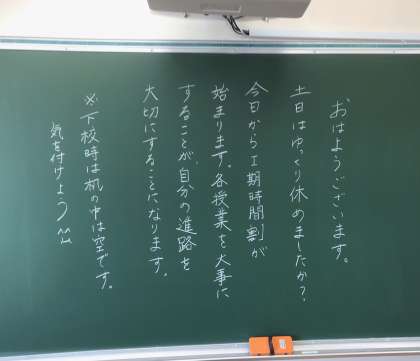 おはようございます。
土日はゆっくり休めましたか？
今日からI期時間割が
始まります。各授業を大事に
することが、自分の進路を
大切にすることになります。
※下校時は机の中は空です。
気を付けよう